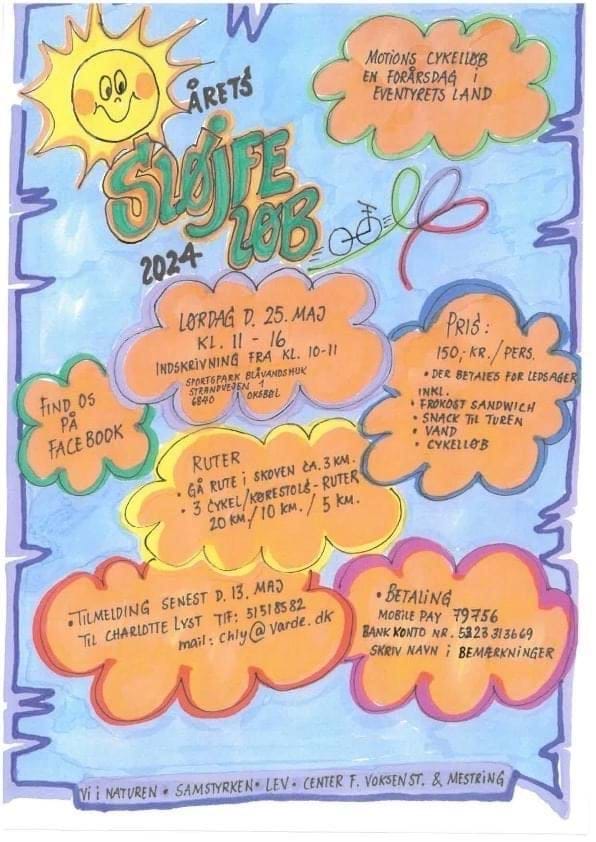 ÅRETS
SLØJFE
LØB
2024
MOTIONS CYKELLØB
EN FORÅRSDAG I
EVENTYRETS LAND
LØRDAG D. 25. MAJ
KL. 11 - 16
INDSKRIVNING FRA KL. 10-11
SPORTSPARK BLÅVANDSHUK
STRANDVEJEN 1
6840 OKSBØL
PRIS:
150,- KR./PERS.
• DER BETALES FOR LEDSAGER
INKL.
• FROKOST SANDWICH
• SNACK TIL TUREN
• VAND
• CYKELLØB
FIND OS
PÅ
FACEBOOK
RUTER
• GÅ RUTE I SKOVEN CA. 3 KM.
• 3 CYKEL/KØRESTOLS-RUTER
20 KM./10 KM./ 5 KM.
• TILMELDING SENEST D. 13. MAJ
TIL CHARLOTTE LYST Tlf: 51518582
mail: chly@varde.dk
• BETALING
MOBILE PAY 79756
BANK KONTO NR. 5323 313669
SKRIV NAVN i BEMÆRKNINGER
Vi i NATUREN • SAMSTYRKEN • LEV • CENTER F. VOKSENST. & MESTRING